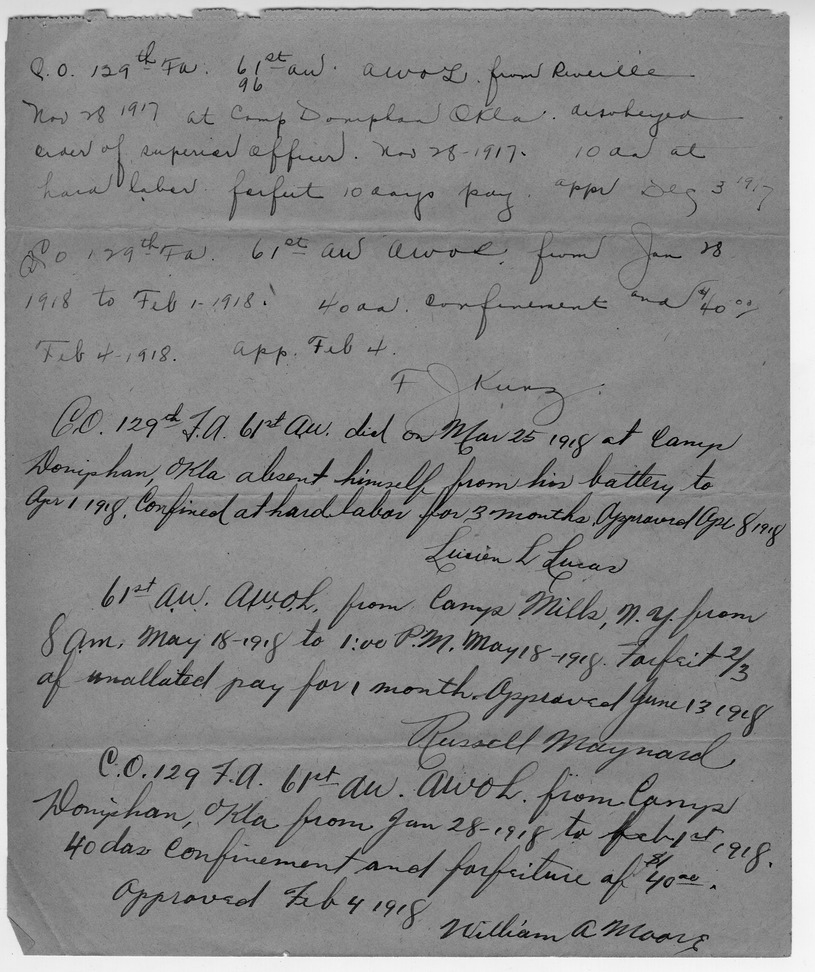 S.O. 129th Fa. 61st aw. awol from Reveille
96
Nov 28 1917 at Camp Doniphan Okla. disobeyed
order of superior officer. Nov 28-1917. 10 da at
hard labor. forfeit 10 days pay. appr Dec 3 1917
S.O 129th Fa. 61st aw awol, from Jan 28
1918 to Feb 1-1918. 40 da. confinement and $40.00
Feb 4-1918. app. Feb 4.
F J Kunz.
C.O. 129th F.A. 61st A.W. did on Mar 25 1918 at Camp
Doniphan, Okla absent himself from his battery to
Apr 1 1918. Confined at hard labor for 3 months. Approved Apr 8 1918
Lucien L Lucas
61st A.W. A.W.O.L. from Camp Mills, N.Y. from
8 Am. May 18-1918 to 1:00 P.M. May 18-1918. Forfeit 2/3
of unallated pay for 1 month. Approved June 13 1918
Russell Maynard
C.O. 129 F.A. 61st AW. AWOL. from Camp
Doniphan, Okla from Jan 28-1918 to Feb 1st 1918.
40 das confinement and forfeiture of $40.00.
Approved Feb 4 1918
William A Moore